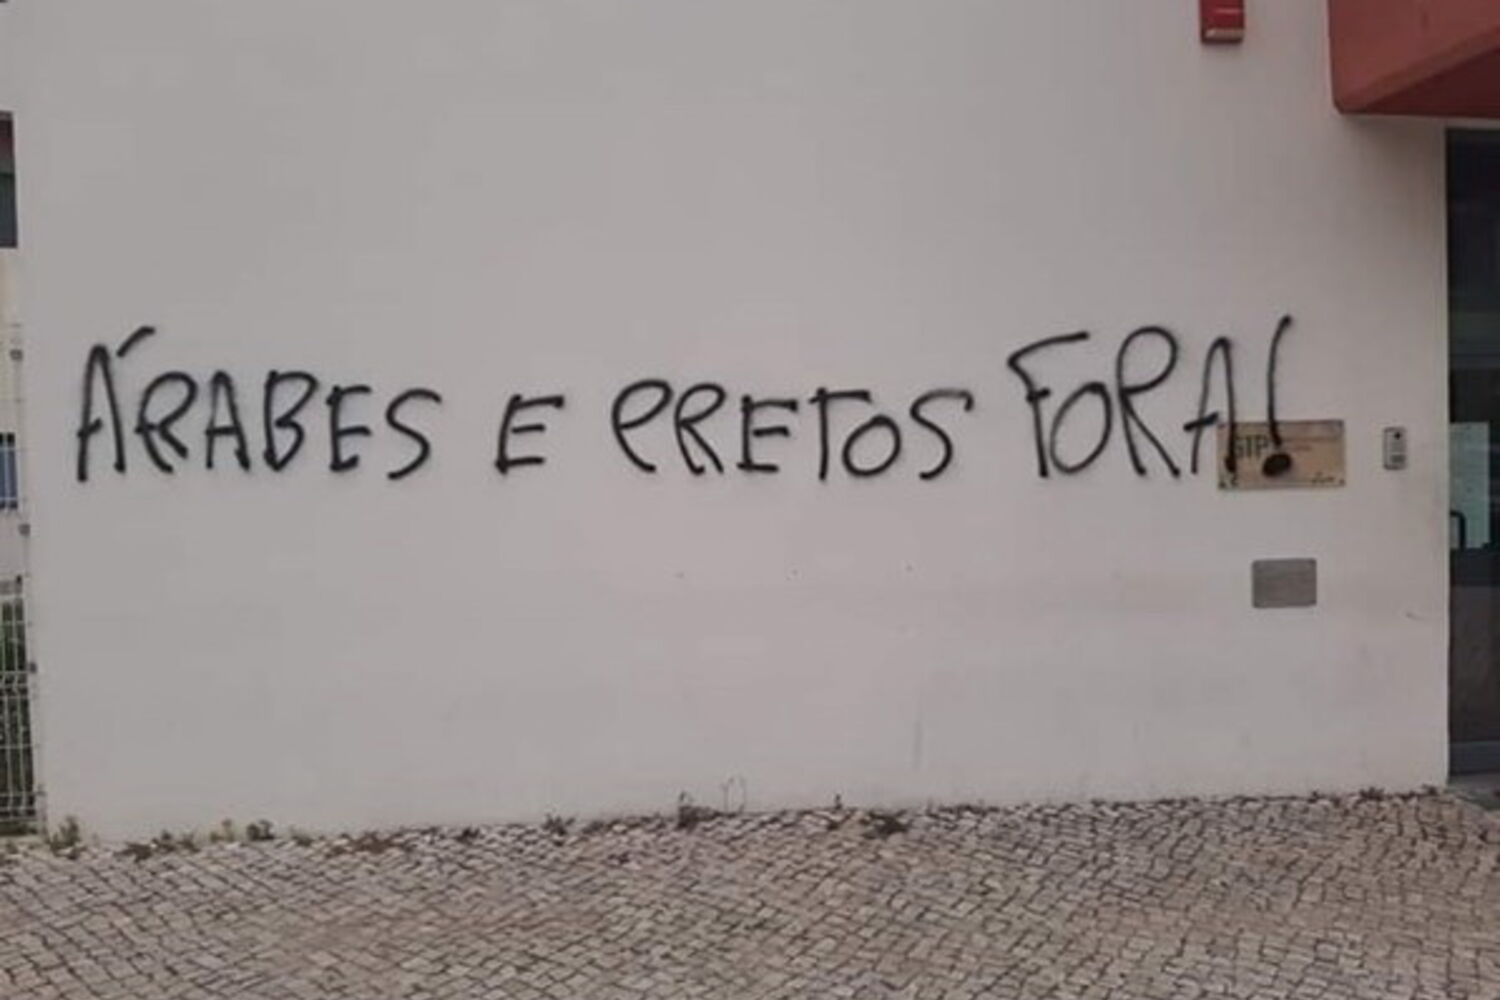 ÁRABES E PRETOS FORA!
GIP